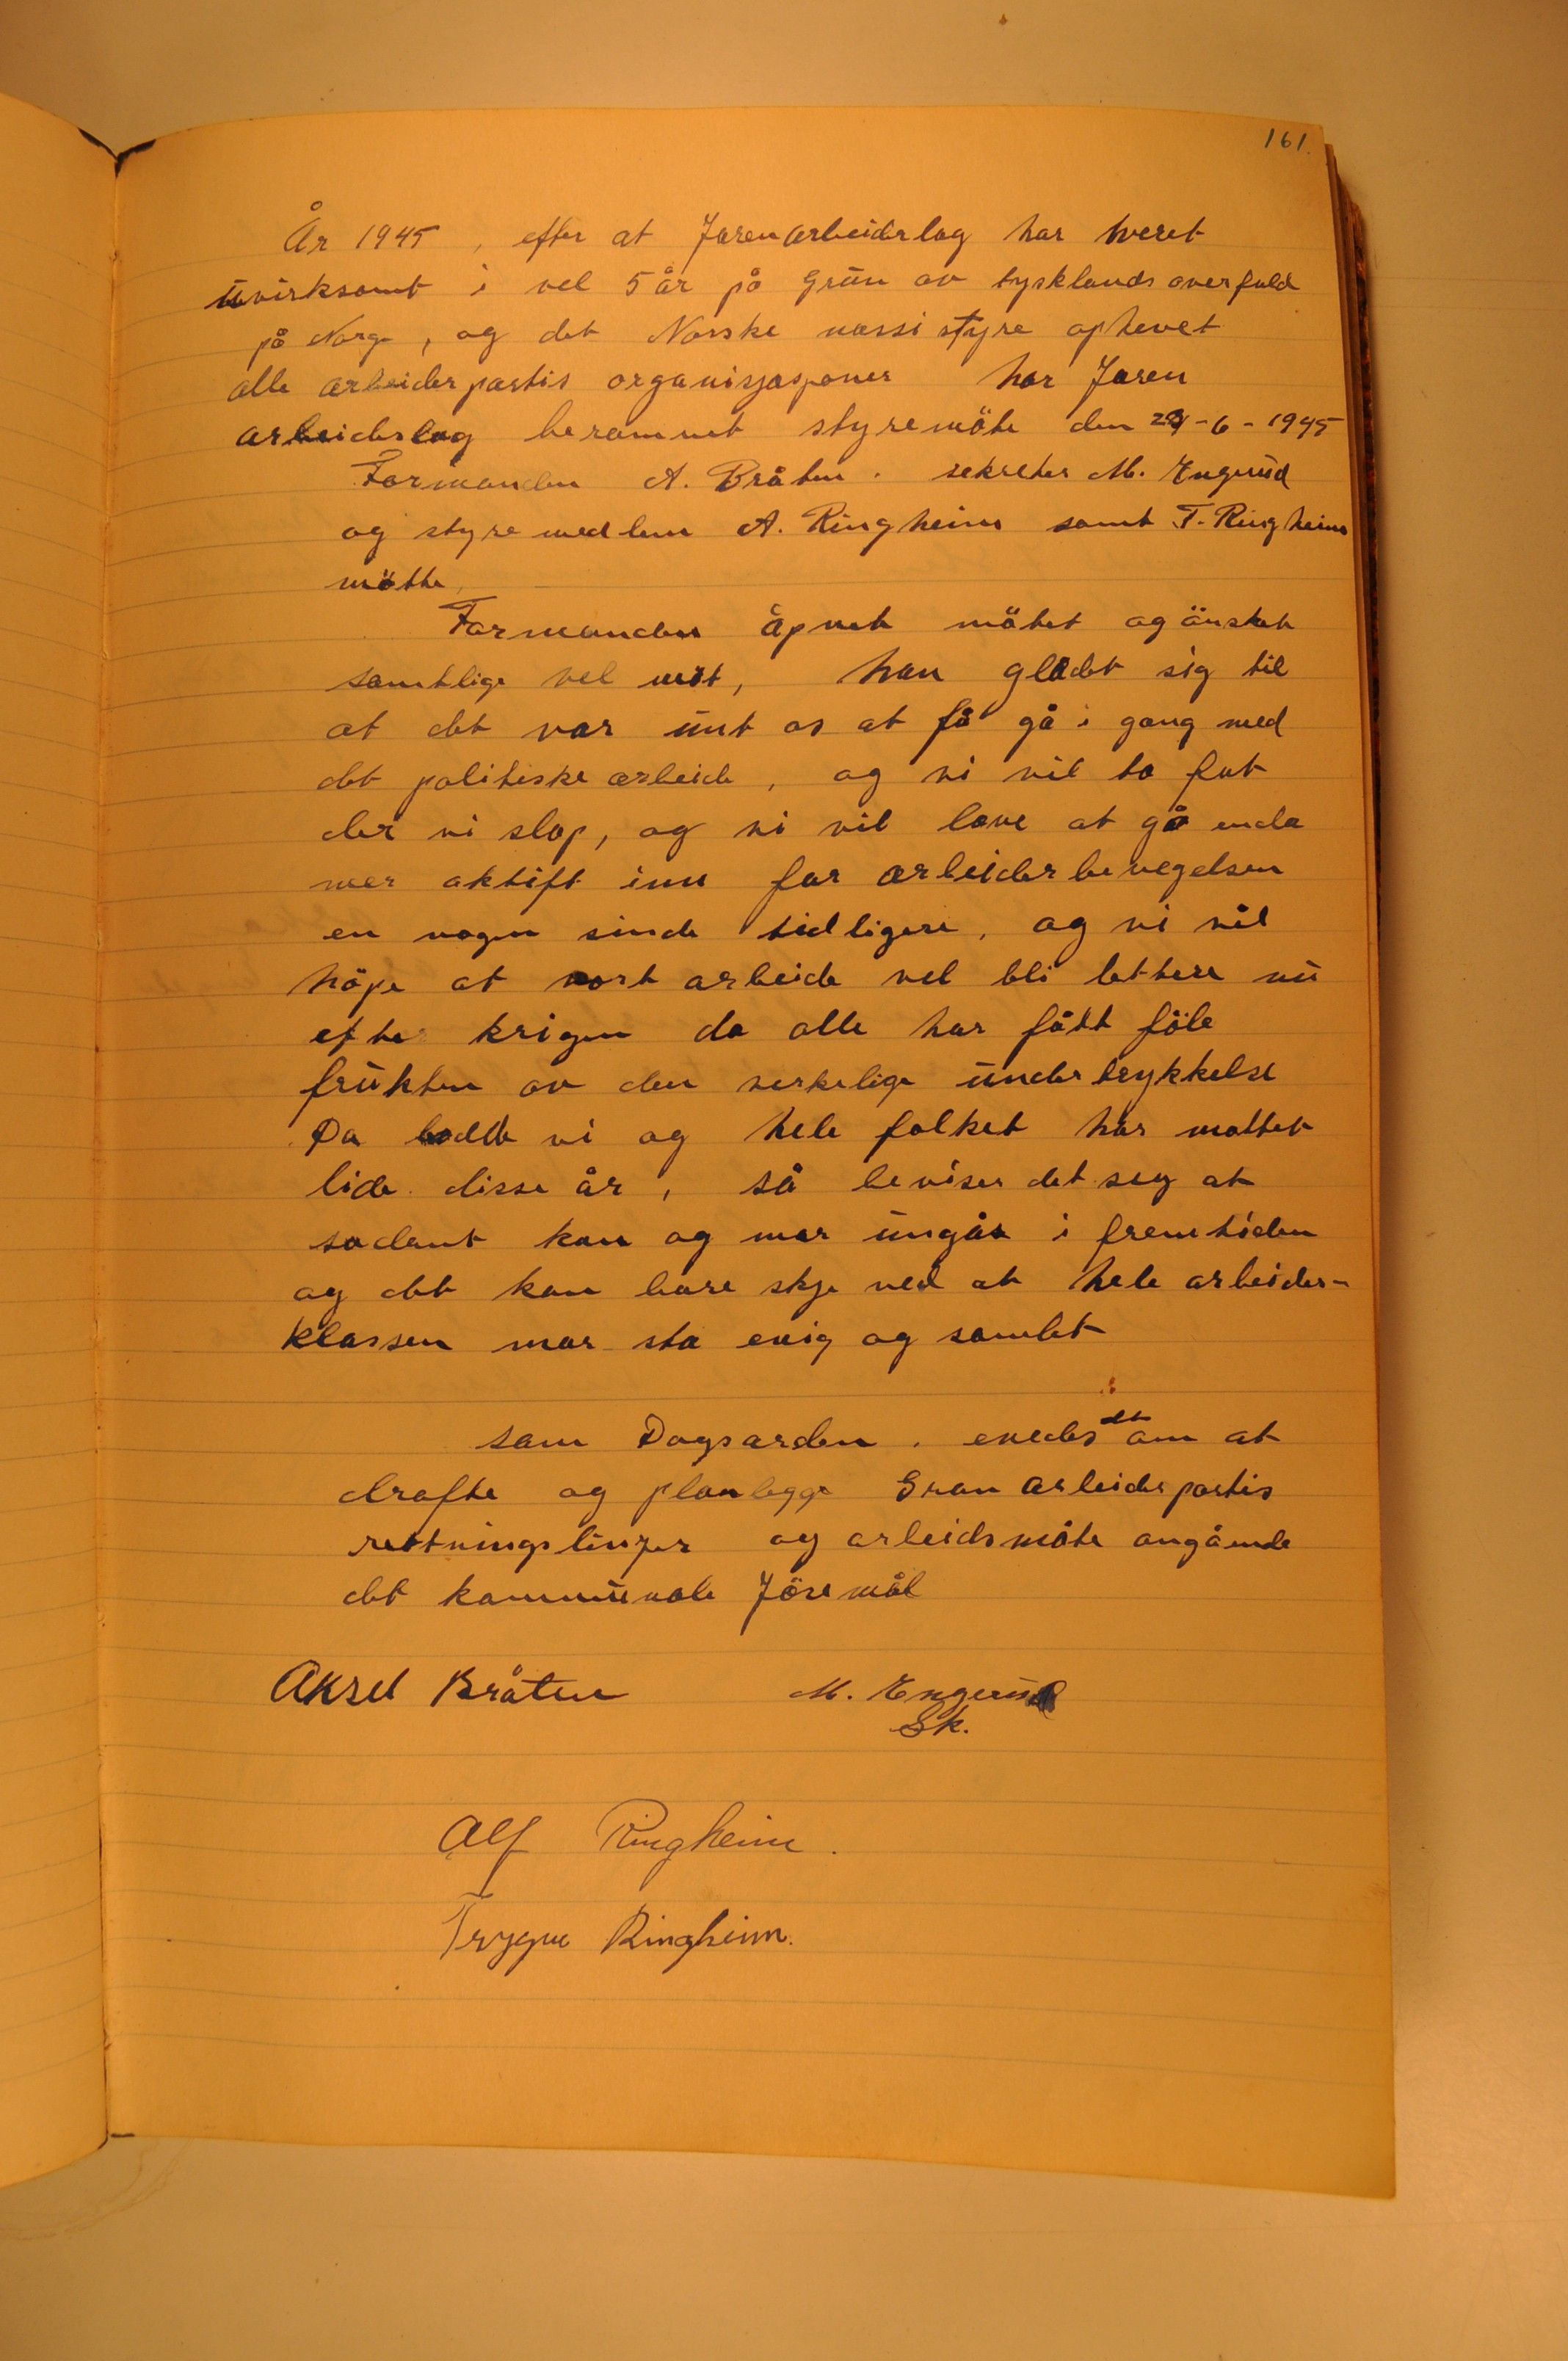 161.
År 1945, efter at Jarenarbeiderlag har veret
uvirksomt i vel 5 år på grün av tysklands overfald
på Norge, og det Norske nassi styre ophevet
alle arbeiderpartis organisjasjoner har Jaren
arbeiderlag berammet styremöte den -6-1945
Formanden A. Bråten. sekreter M. Engerud
og styremedlem A. Ringheim samt T. Ringheim
mötte.
Formanden åpnet mötet og önsket
samtlige vel möt, han gledet sig til
at det var ünt os at få gå i gang med
det politiske arbeide, og vi vil ta fat
der vi slap, og vi vil love at gå enda
mer aktift inn for arbeiderbevegelsen
en nogen sinde tidligere, og vi vil
håpe at vort arbeide vel bli lettere nü
efter krigen da alle har fått föle
frükten av den verkelige ündertrykkelse
Da både vi og hele folket har mottet
lide disse år, så beviser det seg at
sodant kan og mår üngås i fremtiden
og det kan bare skje ved at hele arbeider-
klassen mar sta enig og samlet
som Dagsorden. enedes det om at
drøfte og planlegge Gran arbeiderpartis
rettningslinjer og arbeidsmåte angående
det kommünale föremål
Aksel Bråten M. Engerüd
Sk.
Alf Ringheim.
Trygve Ringheim.